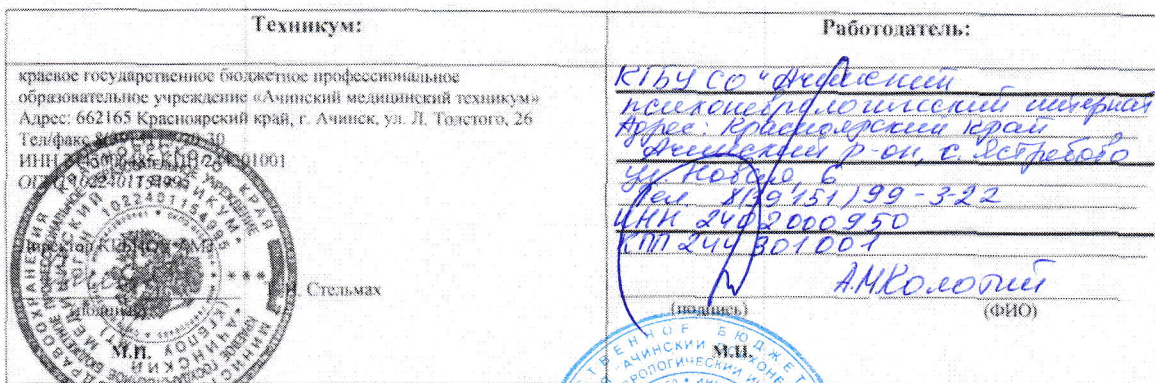 Техникум:
краевое государственное бюджетное профессиональное
образовательное учреждение «Ачинский медицинский техникум»
Адрес: 662165 Красноярский край, г. Ачинск, ул. Л. Толстого, 26
Тел/факс
ИНН
Стельмах
М.П.
Работодатель:
КГБУ СО "Ачинский
психоневрологический интернат
Адрес: Красноярский край
Ачинский р-он, с. Ястребово
ул. Новая, 6
Тел. 8(39151) 99-3-22
ИНН 2402000950
КПП 244301001
А.М.Колотий
(подпись) (ФИО)
М.П.